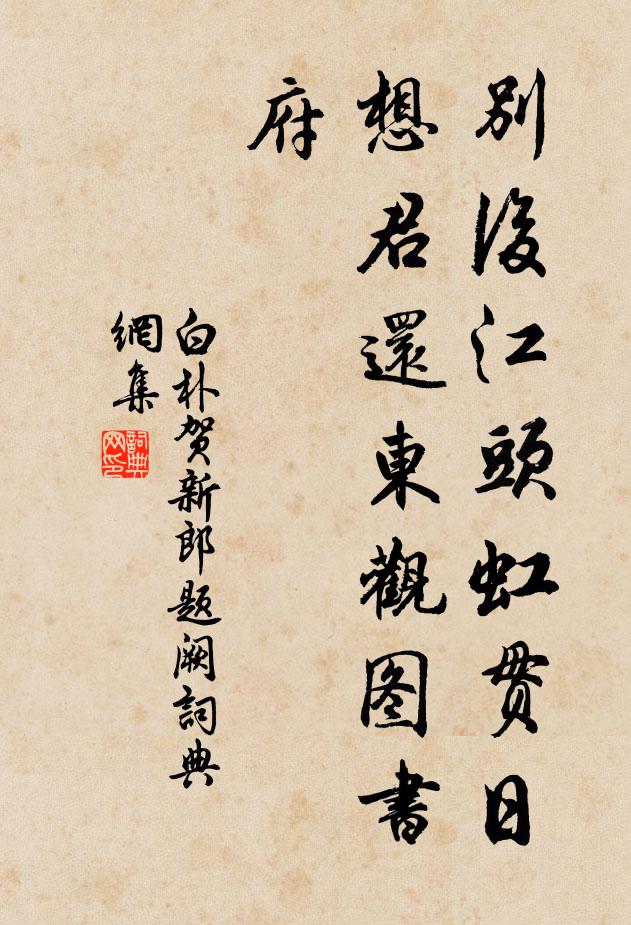 別後江頭虹貫日
想君還東觀图書
府
白朴贺新郎题阙詞典
網集
詞典
网印